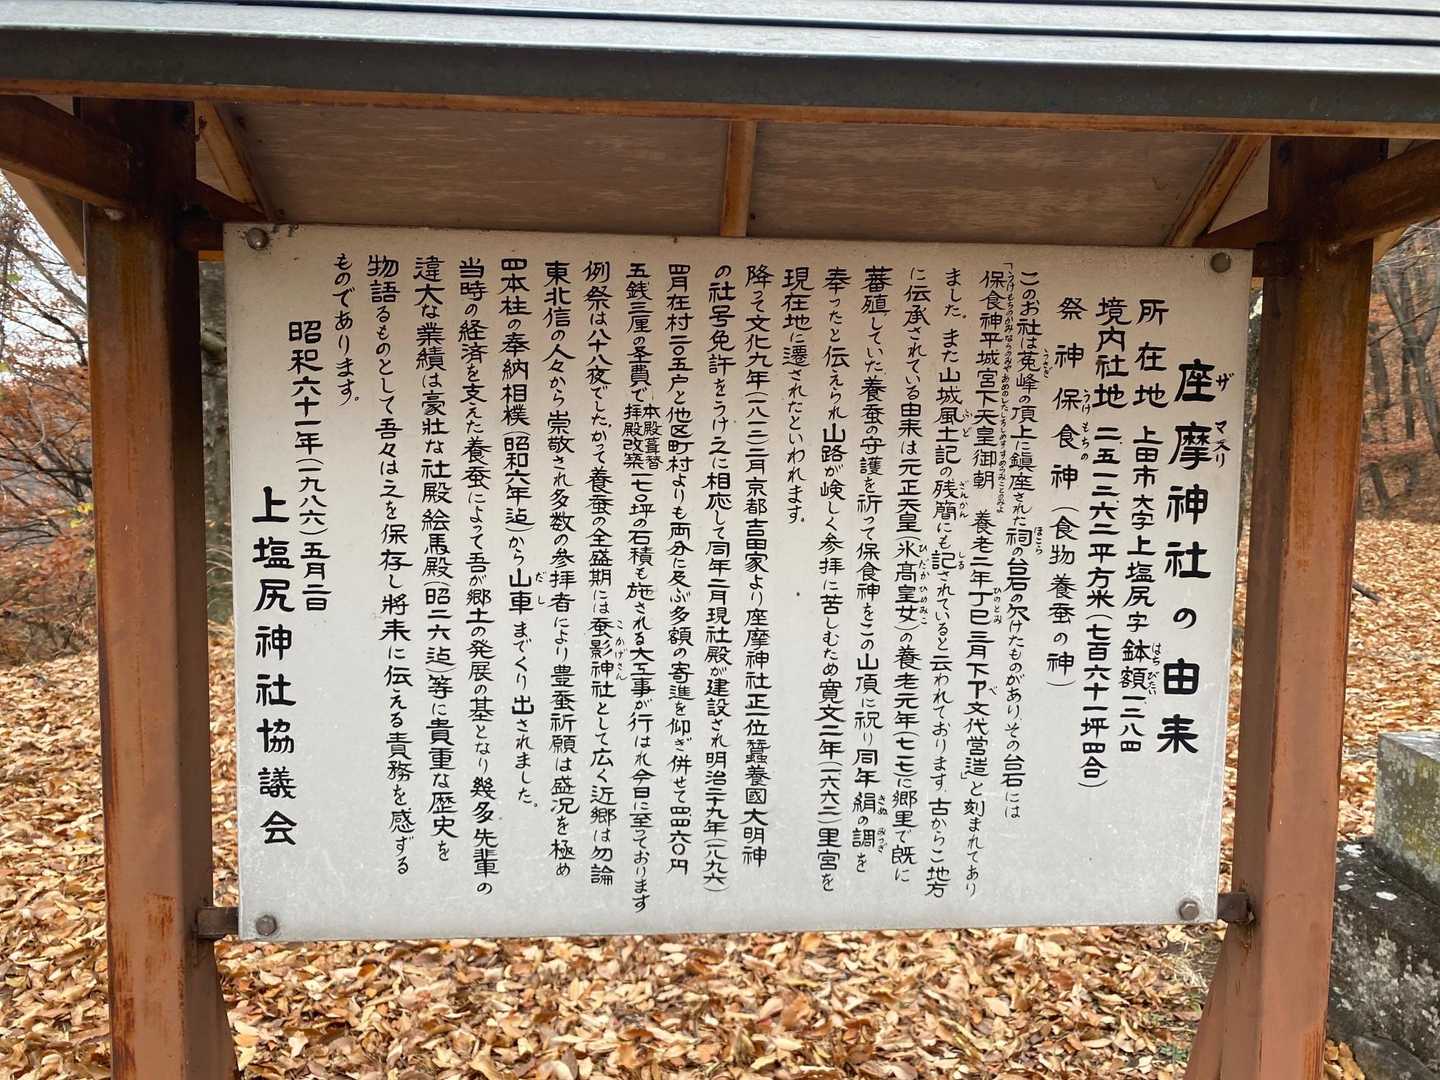 座摩神社の由来
所在地 上田市大字上塩尻字鉢額一二八四
境内社地 二五一三六二平方米(七百六十一坪四合)
祭神 保食神(食物養蚕の神)
このお社は莵峰の頂上に鎮座された祠の台石の欠けたものがあり、その台石には
「保食神平城宮下天皇御朝 養老二年丁巳三月下卩文代営造」と刻まれてあり
ました。また山城風土記の残簡にも記されていると云われております。古からこ地方
に伝承されている由来は元正天皇(氷髙皇女)の養老元年(七一七)に郷里で既に
蕃殖していた養蚕の守護を祈って保食神をこの山頂に祝り同年絹の調を
奉ったと伝えられ山路が峻しく参拝に苦しむため寛文二年(一六六二)里宮を
現在地に遷されたといわれます。
降って文化九年(一八一二)三月京都吉田家より座摩神社正一位蠶養國大明神
の社号免許をうけ之に相応して同年二月現社殿が建設され明治二十九年(一八九六)
四月在村二〇五戸と他区町村よりも両分に及ぶ多額の寄進を仰ぎ併せて四四六〇円
五銭三厘の圣費で本殿葺替拝殿改築一七〇坪の石積も施される大工事が行はれ今日に至っております
例祭は八十八夜でした、かって養蚕の全盛期には蚕影神社として広く近郷は勿論
東北信の人々から崇敬され多数の参拝者により豊蚕祈願は盛況を極め
四本柱の奉納相撲(昭和六年迠)から山車までくり出されました。
当時の経済を支えた養蚕によって吾が郷土の発展の基となり幾多先輩の
違大な業績は豪壮な社殿絵馬殿(昭二六迠)等に貴重な歴史を
物語るものとして吾々は之を保存し將来に伝える責務を感ずる
ものであります。
昭和六十一年(一九八六)五月二日
上塩尻神社協議会